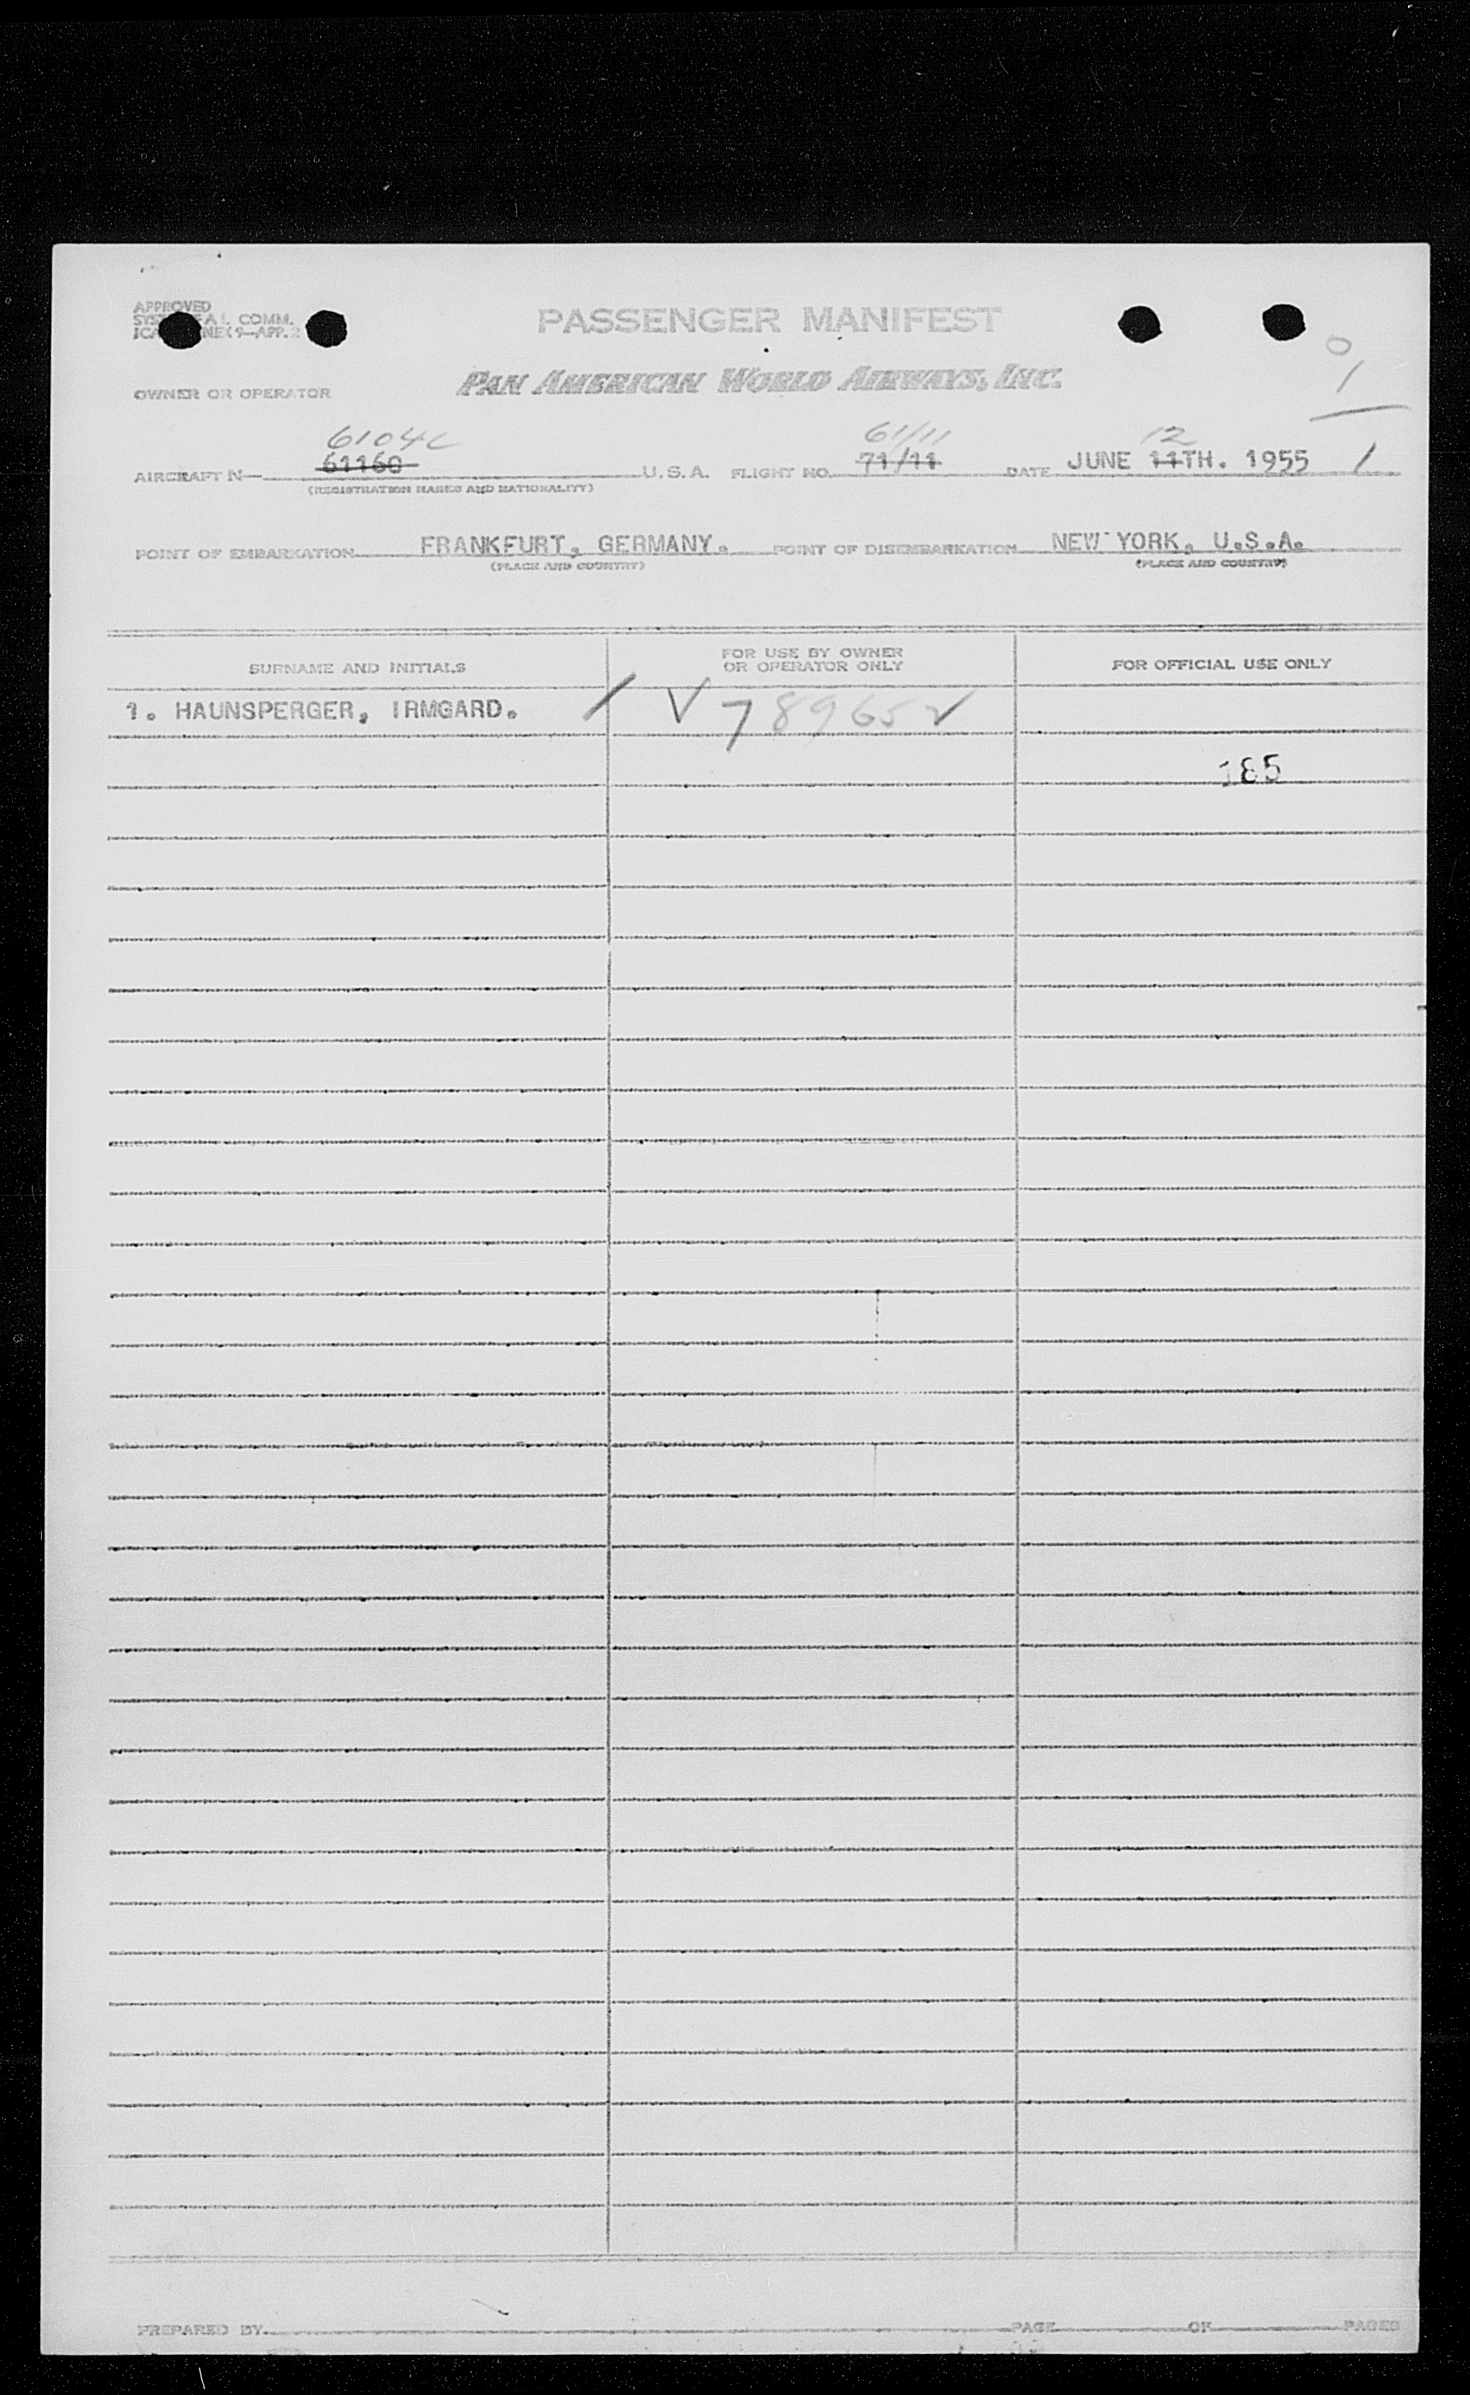 APPROVED
COMM.
APP. 2
PASSENGER MANIFEST
0
1
OWNER OR OPERATOR
PAN AMERICAN WORLD AIRWAYS, INC.
6104C 61/11 12
AIRCRAFT N— 61160 U.S.A. FLIGHT NO. 71/11 DATE JUNE 11TH. 1955 1
(REGISTRATION MARKS AND NATIONALITY)
POINT OF EMBARKATION FRANKFURT, GERMANY. POINT OF DISEMBARKATION NEW YORK, U.S.A.
(PLACE AND COUNTRY) (PLACE AND COUNTRY)
SURNAME AND INITIALS
FOR USE BY OWNER
OR OPERATOR ONLY
FOR OFFICIAL USE ONLY
1. HAUNSPERGER, IRMGARD. / V 78965 ✓
185
PREPARED BY PAGE OF PAGES